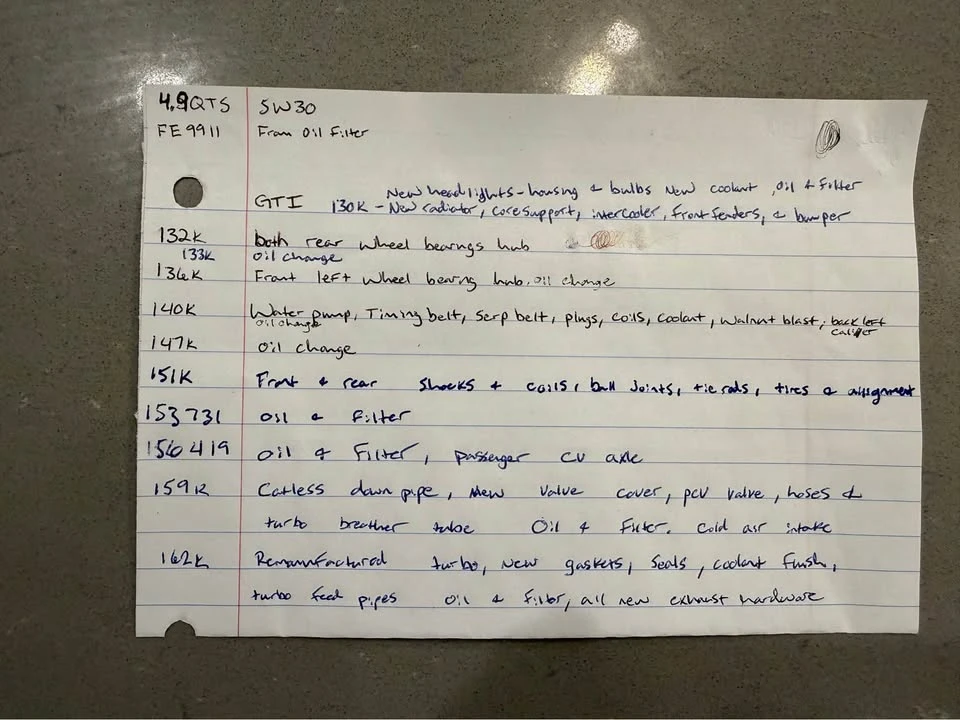 4.9QTS 5W30
FE9911 Fram Oil Filter
New headlights - housing & bulbs New coolant, oil & Filter
GTI 130K - New radiator, core support, intercooler, front fenders, & bumper
132K both rear wheel bearings hub
133K oil change
136K Front left wheel bearing hub, oil change
140K Water pump, Timing belt, Serp belt, plugs, coils, coolant, walnut blast, back left
oil change caliper
147K oil change
151K Front & rear shocks & coils, ball joints, tie rods, tires & alignment
153731 oil & Filter
156419 oil & Filter, passenger CV axle
159K Catless down pipe, New valve cover, pcv valve, hoses &
turbo breather tube Oil & Filter. Cold air intake
162K Remanufactured turbo, New gaskets, seals, coolant flush,
turbo feed pipes oil & filter, all new exhaust hardware